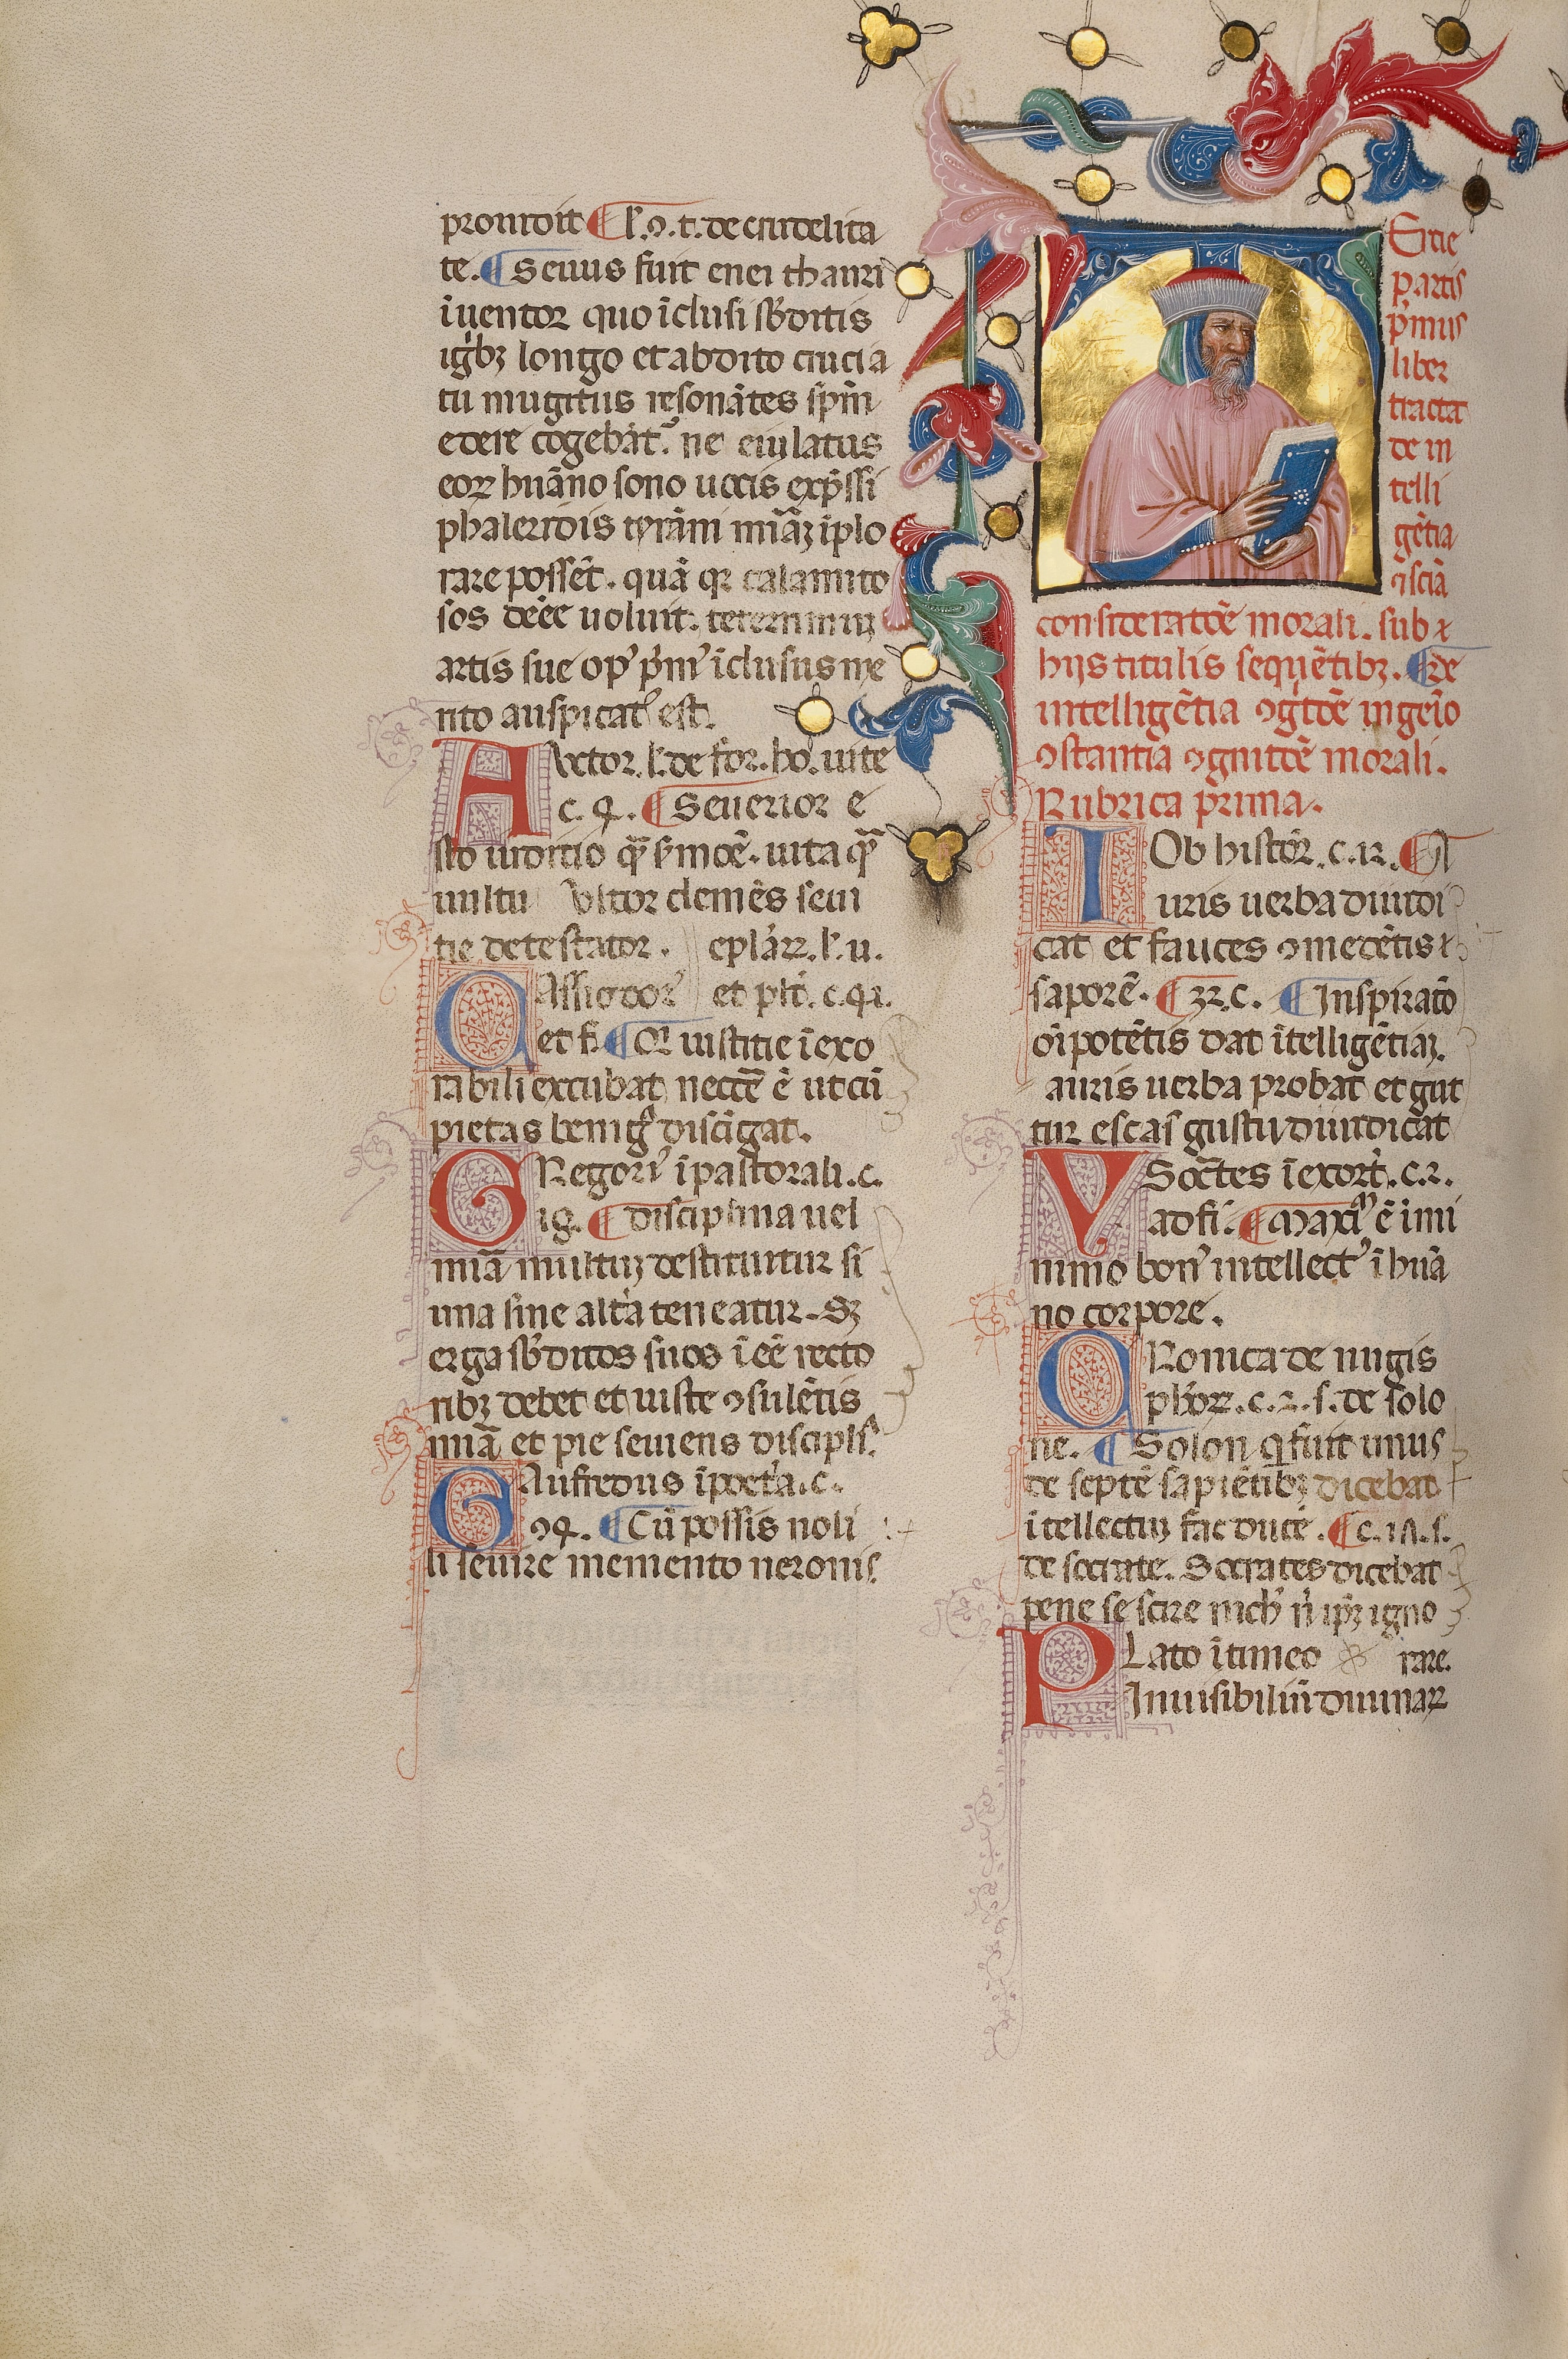 prouidit ¶ l.9.t. de crudelita
te. ¶ Seuus fuit enei thauri
īuentor quo īclusi sb̄ditis
igb̾ꝫ longo et abdito crucia
tu mugitus resonātes spm̄
edere cogebāt᷑. ne eiulatus
eoꝝ huāno sono uocis exp̄ssi
phaleridis tyrāni miāꝫ īplo
rare possēt. quā qꝛ calamito
sos deēē uoluit. teterrimuꝫ
artis sue opꝰ pͥmꝰ īclusus me
rito auspicatꝰ est.
Auctor. l. de for. ho. uite
c. 4. ¶ Seuerior e
sto iuditio qͣꝫ sͬmōe. uita qͣꝫ
uultu Vltor clemēs seui
tie detestator. eplaꝝ. l. u.
Cassiodorꝰ et plͥ. c. 41.
et fi. ¶ Cor iustitie īexo
rabili excubat neccē ē ut cū
pietas benigͣ discīgat.
Gregoriꝰ ī pastorali. c.
19. ¶ disciplina uel
miā multuꝫ destituitur si
una sine altͣa teneatur. Sꝫ
erga sb̄ditos suos ī eē recto
ribꝫ debet et iuste ꝯsulētis
miā et pie seuiens discipliͣ.
Gaufredus ī poetͥa. c.
94. ¶ Cū possis noli
li seuire memento neronis
Ertie
partis
pͥmus
liber
tracta
de in
telli
gētia
ꝯsciā
consideratōē morali. sub x
hijs titulis sequētibꝫ. ¶ de
intelligētia ꝯgͥtōē ingeīo
ꝯstantia ꝯgnitōē morali.
Rubrica pͥrima.
IOb histor̄. c. 12. ¶ A
uris uerba diiudi
cat et fauces ꝯmedētis
saporē. ¶ 32. c. ¶ Inspiratō
oīpotētis dat ītelligētiaꝫ.
auris uerba probat et gut
tur escas gustu diiudicat
YSocͣtes ī exort̾. c. 2.
ad fi. ¶ Maxiͫ ē ī mi
nimo bonꝰ intellectꝰ ī huā
no corpore.
CRonica de nugis
ph̄oꝝ. c. 2. s. de solo
ne. ¶ Solon q̄ fuit unus
de septē sapiētibꝫ dicebat
ītellectuꝫ fac ducē. ¶ c. s.
de socrate. Socrates dicebat
pene se scire nich̄ nͥ ipꝫ igno
PLato ī timeo rare.
Inuisibiliū diuinaꝝ